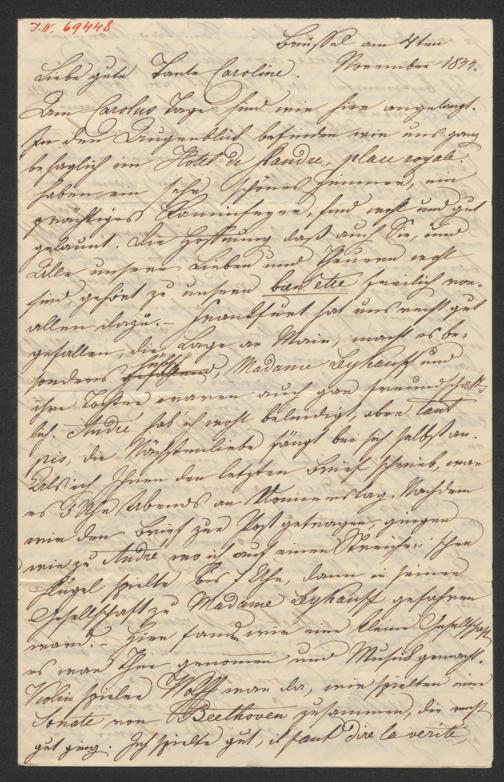 I.N. 69448
Brüssel am 4ten
November 1844.
Liebe gute Tante Caroline.
Am Carolus Tage sind wir hier angelangt.
In den Augenblick befinden wir uns ganz
behaglich im Hôtel de Flandre, place royale.
haben ein sehr schönes Zimmer, ein
prächtiges Kaminfeuer, sind wohl und gut
gelaunt. Die Hoffnung daß auch Sie, und
Alle unsere Lieben und Theuren wohl
sind, gehört zu unserm bien être freilich vor
allem dazu. – Frankfurt hat uns recht gut
gefallen, die Lage am Main, macht es be-
sonders hübsch, Madame Leykauff und
ihre Tochter waren auch gar freundschaft-
lich. André hab' ich wohl beleidigt, aber tant
pis, die Nächstenliebe fängt bei sich selbst an.
Als ich Ihnen den letzten Brief schrieb, war
es Uhr Abends am Donnerstag. Nachdem
wir den Brief zur Post getragen, gingen
wir zu André wo ich auf einem Streicherischen
Flügel spielte bis 7 Uhr, dann in seiner
Gesellschaft zu Madame Leykauff gefahren
ward. – Hier fanden wir eine kleine Gesellschaft
es war Thee genommen und Musik gemacht.
Violin spieler Wolff war da, wir spielten eine
Sonate von Beethoven zusammen, die recht
gut ging. Ich spielte gut, il faut dire la verité,